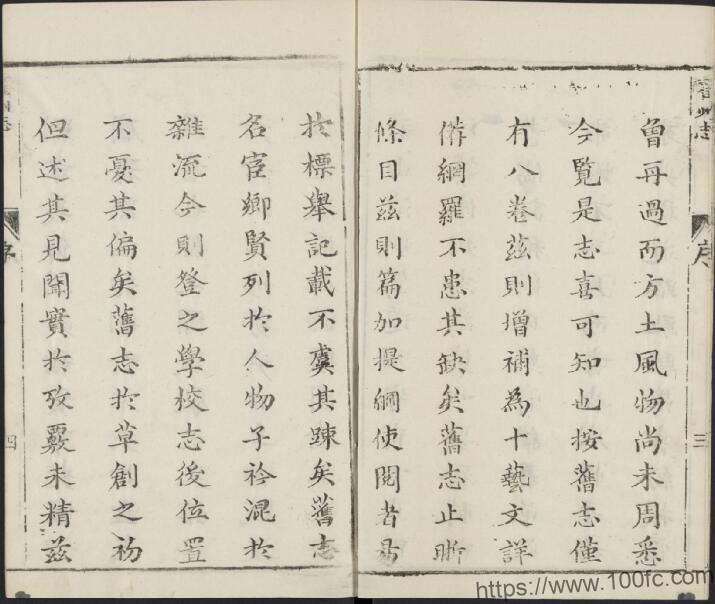 曾再過而方土風物尚未周悉
今覽是志喜可知也按舊志僅
有八卷茲則增補為十藝文詳
備網羅不患其缺矣舊志止晰
條目茲則篇加提綱使閱者易
序
三
於標舉記載不虞其踈矣舊志
名宦鄉賢列於人物子衿混於
雜流今則登之學校志後位置
不憂其偏矣舊志於草創之初
但述其見聞實於攷覈未精茲
四
https://www.100fc.com